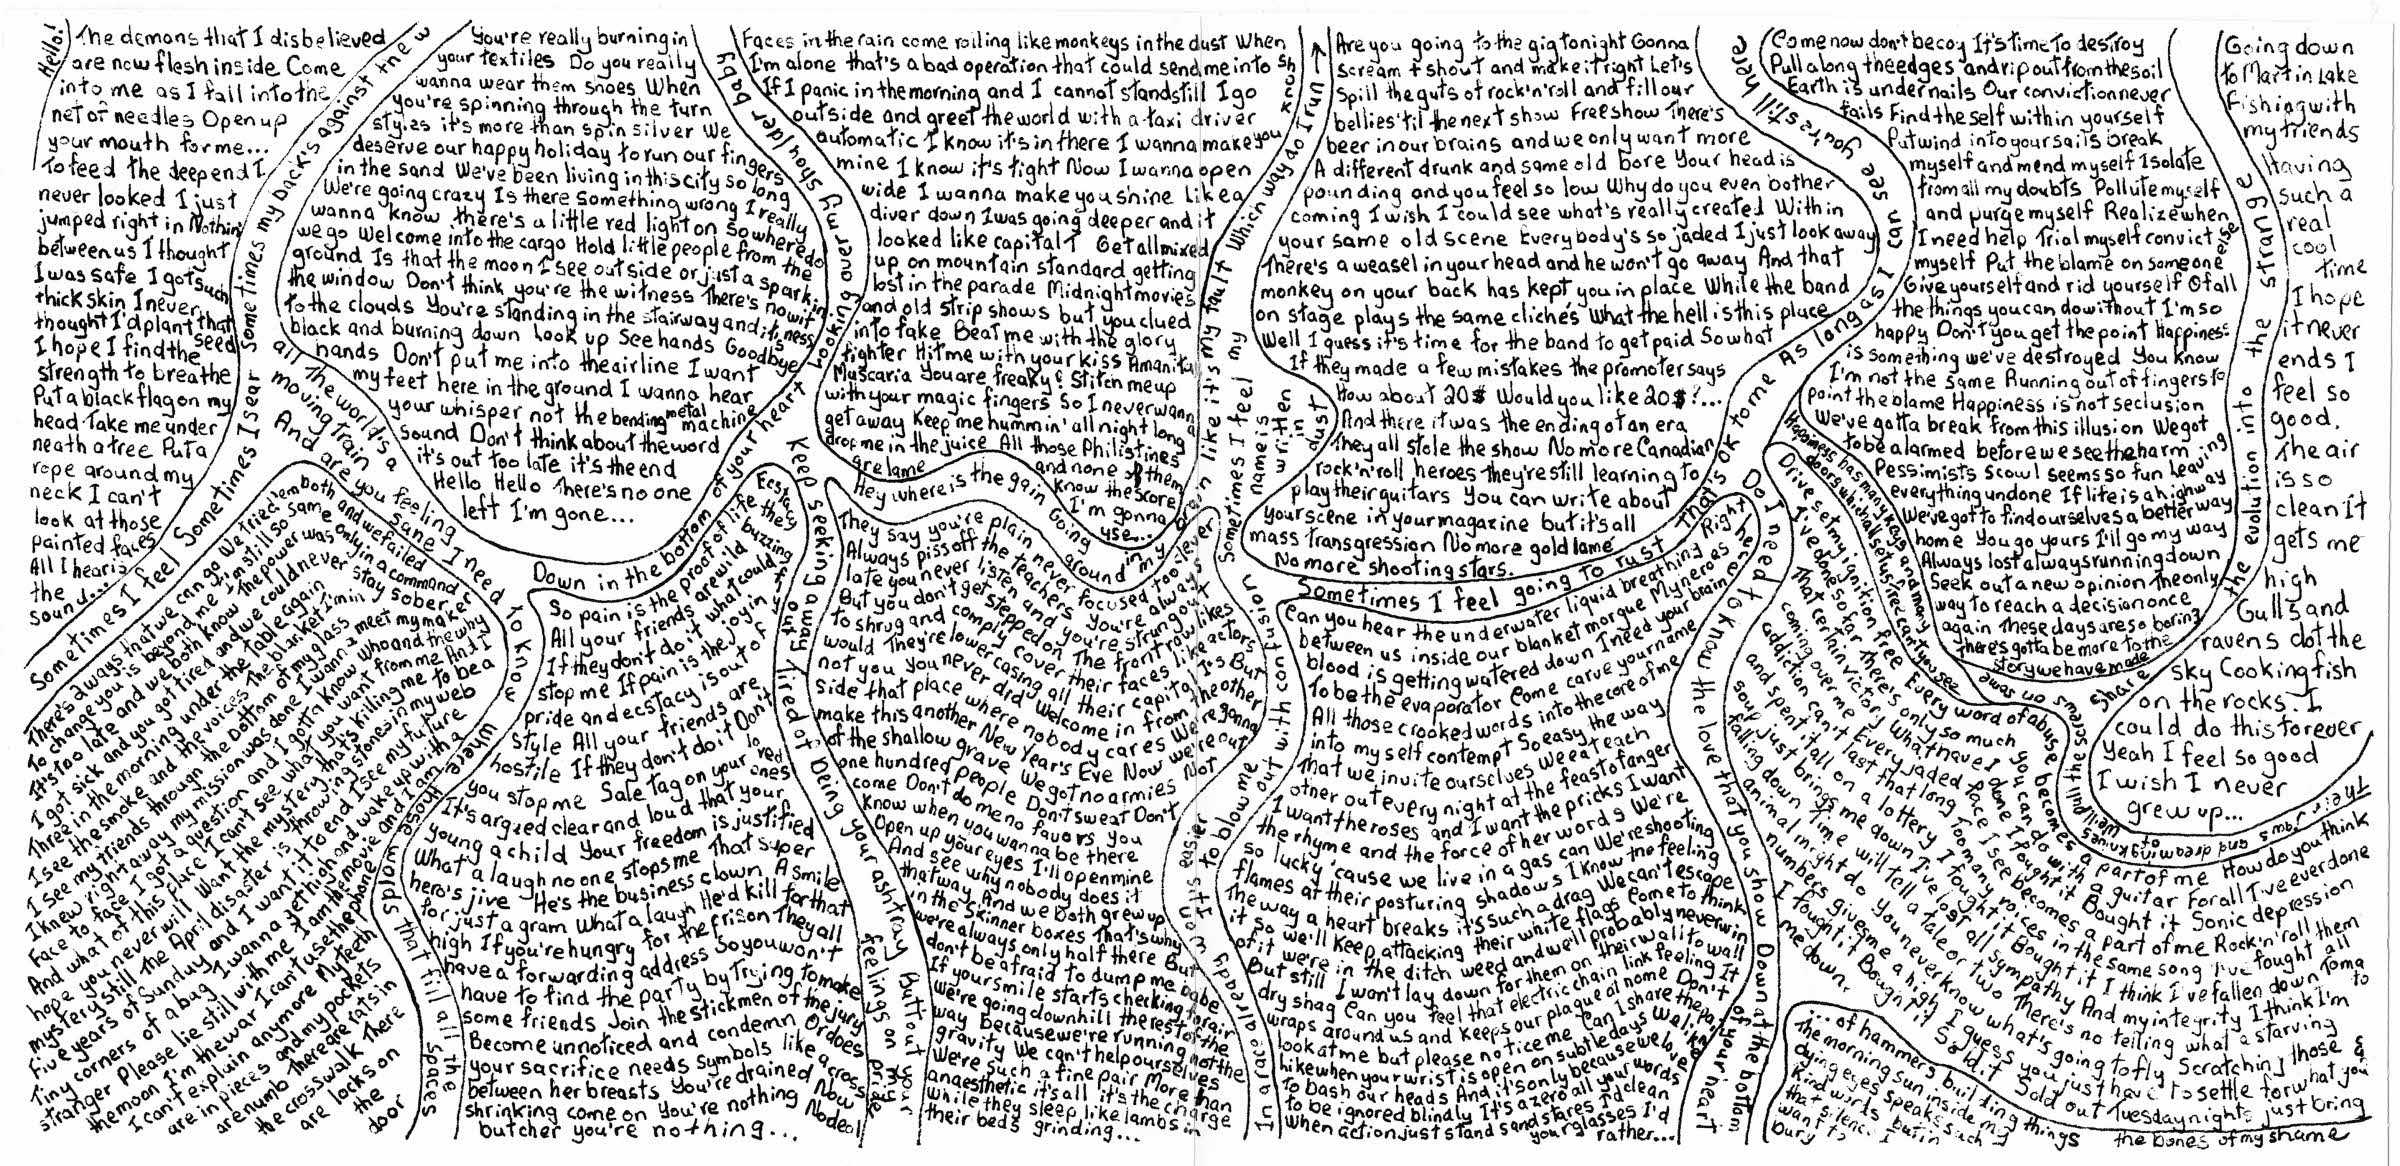 Hello!
The demons that I disbelieved
are now flesh inside Come
into me as I fall into the
net of needles Open up
your mouth for me...
To feed the deep end I
never looked I just
jumped right in Nothin'
between us I thought
I was safe I got such
thick skin I never
thought I'd plant that
seed
I hope I find the
strength to breathe
Put a black flag on my
head Take me under
neath a tree Put a
rope around my
neck I can't
look at those
painted faces
All I hear is
the
sound...
Sometimes I feel Sometimes I fear Sometimes my back's against the w
all The world's a
moving train
And are you feeling
sane I need to know
where
those diamonds that fill all the spaces
You're really burning in
your textiles Do you really
wanna wear them shoes When
you're spinning through the turn
styles it's more than spin silver We
deserve our happy holiday to run our fingers
in the sand We've been living in this city so long
We're going crazy Is there something wrong I really
wanna know There's a little red light on So where do
we go Welcome into the cargo Hold little people from the
ground Is that the moon I see outside or just a spark in
the window Don't think you're the witness There's no wit
ness
to the clouds You're standing in the stairway and it's
black and burning down Look up See hands Goodbye
hands Don't put me into the airline I want
my feet here in the ground I wanna hear
your whisper not the bending metal machine
sound Don't think about the word
it's out too late it's the end
Hello Hello There's no one
left I'm gone...
Down in the bottom of your heart Looking over my shoulder baby
Faces in the rain come roiling like monkeys in the dust When
I'm alone that's a bad operation that could send me into sh
ock
If I panic in the morning and I cannot stand still I go
outside and greet the world with a taxi driver
automatic I know it's in there I wanna make you
mine I know it's tight Now I wanna open
wide I wanna make you shine Like a
diver down I was going deeper and it
looked like capital T Get all mixed
up on mountain standard getting
lost in the parade Midnight movies
and old strip shows but you clued
into fake Beat me with the glory
fighter Hit me with your kiss Amanita
Muscaria You are freaky & Stitch me up
with your magic fingers So I never wanna
get away Keep me hummin' all night long
drop me in the juice All those Philistines
are lame and none of them
know the score
I'm gonna
use...
Hey where is the gain Going around in my brain like it's my fault Which way do I run
Sometimes I feel my
name is
written
in
dust
Are you going to the gig tonight Gonna
scream & shout and make it right Let's
spill the guts of rock'n'roll and fill our
bellies 'til the next show Free show There's
beer in our brains and we only want more
A different drunk and same old bore Your head is
pounding and you feel so low Why do you even bother
coming I wish I could see what's really created Within
your same old scene Everybody's so jaded I just look away
There's a weasel in your head and he won't go away And that
monkey on your back has kept you in place While the band
on stage plays the same cliches What the hell is this place
Well I guess it's time for the band to get paid So what
If they made a few mistakes the promoter says
How about 20$ Would you like 20$?...
And there it was the ending of an era
They all stole the show No more Canadian
rock'n'roll heroes They're still learning to
play their guitars You can write about
your scene in your magazine but it's all
mass transgression No more gold lamé
No more shooting stars.
Sometimes I feel going to rust That's ok to me As long as I can see you're still here
Come now don't be coy It's time to destroy
Pull along the edges and rip out from the soil
Earth is under nails Our conviction never
fails Find the self within yourself
Put wind into your sails break
myself and mend myself Isolate
from all my doubts Pollute myself
and purge myself Realize when
I need help Trial myself convict
myself Put the blame on someone
else
Give yourself and rid yourself Of all
the things you can do without I'm so
happy Don't you get the point Happiness
is something we've destroyed You know
I'm not the same Running out of fingers to
point the blame Happiness is not seclusion
We've gotta break from this illusion We got
to be alarmed before we see the harm
Pessimists scowl seems so fun Leaving
everything undone If life is a highway
We've got to find ourselves a better way
home You go yours I'll go my way
Always lost always running down
Seek out a new opinion The only
way to reach a decision once
again These days are so boring
there's gotta be more to the
story we have made
Happiness has many keys and many
doors which all softly fire can't you see
the evolution into the strange
Going down
to Martin Lake
Fishing with
my friends
Having
such a
real
cool
time
I hope
it never
ends I
feel so
good.
The air
is so
clean It
gets me
high
Gulls and
ravens dot the
sky Cooking fish
on the rocks. I
could do this forever
Yeah I feel so good
I wish I never
grew up...
There's always that we can go We tried 'em both and we failed
To change you is beyond me I'm still so same only in a command
It's too late and we both know The power was
I got sick and you got tired and we could never stay sober
Three in the morning under the table again
I see the smoke and the voices The blanket I'm in
I see my friends through the bottom of my glass
I knew right away my mission was done I wanna meet my maker
Face to face I got a question and I gotta know who and the why
And what of this place I can't see what you want from me And I
hope you never will Want the mystery that's killing me to be a
mystery still The April disaster is throwing stones in my web
Five years of Sunday and I want it to end I see my future
Tiny corners of a bag I wanna get high and wake up with a
stranger Please lie still with me I am the movie and I am
the moon I'm the war I can't use the phone
I can't explain anymore My teeth
are in pieces and my pockets
are numb There are rats in
the crosswalk There
are locks on
the
door
So pain is the proof of life they
All your friends are wild
If they don't do it what could
stop me If pain is the joy in
pride and ecstacy is out of
style All your friends are
hostile If they don't do it Don't
you stop me Sale tag on your
It's argued clear and loud that your
young a child Your freedom is justified
What a laugh no one stops me That super
hero's jive He's the business clown A smile
for just a gram What a laugh He'd kill for that
high If you're hungry for the frison They all
have a forwarding address So you won't
have to find the party by Trying to make
some friends Join the stickmen of the jury
Become unnoticed and condemn Or does
your sacrifice needs symbols like a cross
between her breasts You're drained Now
shrinking come on You're nothing No deal
butcher you're nothing...
Ecstacy
buzzing
Keep seeking away Tired of being your ashtray Butt out your
feelings on my pride
They say you're plain never focused too clever
Always piss off the teachers You're always
late you never listen and you're strung out
But you don't get stepped on The front row likes
to shrug and comply cover their faces like actors
would They're lowercasing all their capital I's But
not you you never did Welcome in from the other
side that place where nobody cares We're gonna
make this another New Year's Eve Now we're out
of the shallow grave We got no armies Not
one hundred people Don't sweat Don't
come Don't do me no favors You
Know when you wanna be there
Open up your eyes I'll open mine
And see why nobody does it
that way And we both grew up
in the Skinner boxes That's why
we're always only half there But
don't be afraid to dump me babe
If your smile starts checking for air
We're going downhill the rest of the
way Because we're running not the
gravity We can't help ourselves
We're such a fine pair More than
anaesthetic it's all it's the charge
while they sleep like lambs in
their beds grinding...
It's easier
to blow me
out with contusion
Can you hear the underwater liquid breathing Right
between us inside our blanket morgue My heroes
blood is getting watered down I need your brain
To be the evaporator Come carve your name
All those crooked words into the core of me
into my self contempt So easy the way
That we invite ourselves We eat each
other out every night at the feast of anger
I want the roses and I want the pricks I want
the rhyme and the force of her words We're
so lucky 'cause we live in a gas can We're shooting
flames at their posturing shadows I know the feeling
The way a heart breaks it's such a drag We can't escape
it So we'll keep attacking their white flags Come to think
of it we're in the ditch weed and we'll probably never win
But still I won't lay down for them on their wall to wall
dry shag Can you feel that electric chain link feeling It
wraps around us and keeps our plague at home Don't
look at me but please notice me Can I share the
hike when your wrist is open on subtle days
To bash our heads And it's only because we love
to be ignored blindly It's a zero all your words
When action just stands and stares I'd clean
your glasses I'd
rather...
Do I need to know the love that you show Down at the bottom
of your heart
Drive set my ignition free Every word of abuse becomes a part of me How do you think
I've done so far There's only so much you can do with a guitar For all I've ever done
That certain victory What have I done I fought it Bought it Sonic depression
coming over me Every jaded face I see becomes a part of me Rock'n'roll them
addiction can't last that long Too many voices in the same song I've fought all
and spent it all on a lottery I fought it Bought it I think I've fallen down
soul just brings me down I've lost all Sympathy And my integrity I think I'm
falling down Time will tell a tale or two There's no telling what a starving
animal might do You never know what's going to fly Scratching those
numbers gives me a high I guess you just have to settle for what you
I fought it Bought it Sold it Sold out Tuesday nights just bring
me down.
...of hammers building things
The morning sun inside my
dying eyes speaks such
kind words but in
that silence I
want to
bury
the bones of my shame
share